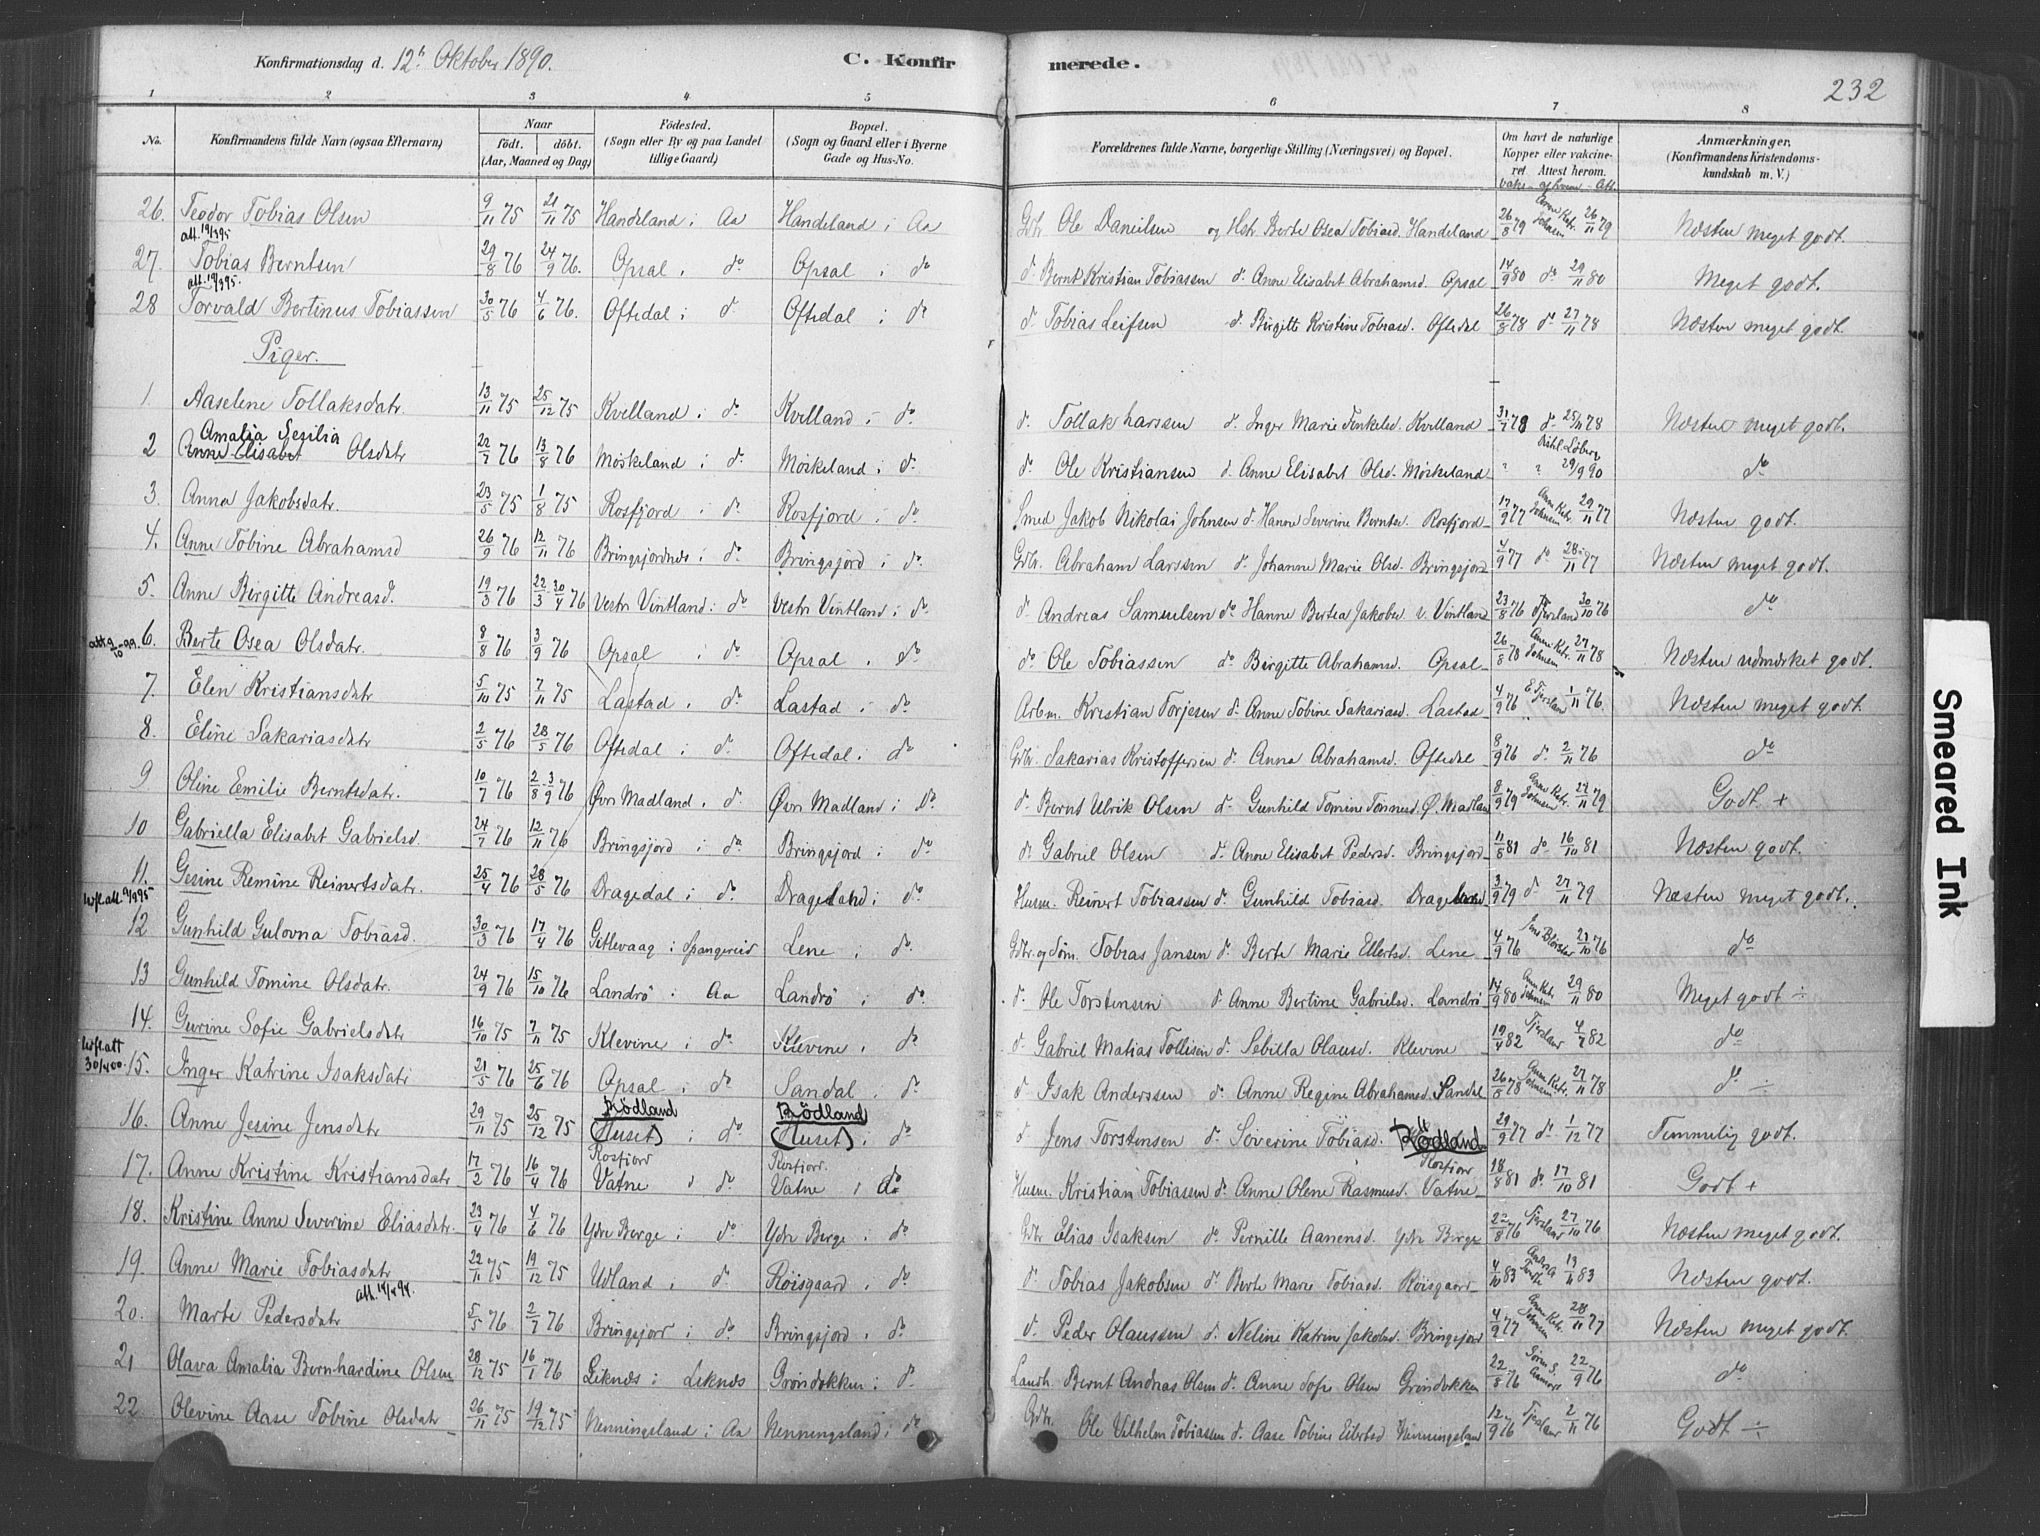 Konfirmationsdag d. 12t Oktober 1890. C. Konfirmerede. 232
1 2 3 4 5 6 7 8
No. Konfirmandens fulde Navn (ogsaa Efternavn) Naar födt. döbt. (Aar, Maaned og Dag) Födested. (Sogn eller By og paa Landet tillige Gaard) Bopæl. (Sogn og Gaard eller i Byerne Gade og Hus-No. Forældrenes fulde Navne, borgerlige Stilling (Næringsvei) og Bopæl. Om havt de naturlige Kopper eller vakcineret. Attest herom. Anmærkninger, (Konfirmandens Kristendomskundskab m. V.)
26. Teodor Tobias Olsen 9/11 75 21/11 75 Handeland i Aa Handeland i Aa Gdbr. Ole Danielsen og Hstr. Berte Osea Tobiasd. Handeland 26/8 79 26/11 79 Næsten meget godt.
att. 19/3 95
27. Tobias Berntsen 29/8 76 24/9 76. Opsal i do Opsal i do d. Bernt Kristian Tobiassen d. Anne Elisabet Abrahamsd. Opsal 14/9 80 do 29/11 80 Meget godt.
28 Torvald Bertinus Tobiassen 30/5 76 4/6 76. Oftedal i do Oftedal i do d. Tobias Leifsen d. Birgitte Kristine Tobiasd. Oftedal 26/8 78 do 27/11 78 Næsten meget godt.
Piger.
1. Aaselene Tollaksdatr. 13/11 75 25/12 75 Kvilland i do Kvilland i do d. Tollak Larssen d. Inger Marie Tinkelsd. Kvilland 78 do 25/11 78 Næsten meget godt.
Amalia Sesilia
2 Anne Elisabet Olsdatr 22/7 76 13/8 76 Moskeland i do Moskeland i do do Ole Kristiansen d. Anne Elisabet Olsd. Moskeland " " 29/9 90 do
3. Anna Jakobsdatr. 23/5 75 1/8 75 Rosfjord i do Rosfjord i do Smed Jakob Nikolai Johnsen d. Hanne Severine Berntsd. Rosfjord 17/9 77 29/11 77 Næsten godt.
4. Anne Tobine Abrahamsd 26/9 76 12/11 76 Bringsjordnes i do Bringsjord i do Gdbr. Abraham Larssen d. Johanne Marie Olsd. Bringsjord 4/9 77 do 28/11 77 Næsten meget godt.
5. Anne Birgitte Andreasd. 19/3 76 22/3 30/4 76 Vestr Vintland i do Vestr Vintland i do d. Andreas Samuelsen do Hanne Bertea Jakobsd v. Vintland 23/8 76 Tjersland 30/10 76 do
6. Berte Osea Olsdatr. 8/8 76 3/9 76 Opsal i do Opsal i do do Ole Tobiassen do Birgitte Abrahamsd. Opsal 26/8 78 27/11 78 Næsten udmærket godt.
7. Elen Kristiansdatr 5/10 75 7/11 75 Lastad i do Lastad i do Arbm. Kristian Torjesen d. Anne Tobine Sakariasd. Lastad 4/9 76 E Tjersland 1/11 76. Næsten meget godt.
8. Eline Sakariasdatr 2/5 76 28/5 76 Oftedal i do Oftedal i do Gdbr. Sakarias Kristoffersen d. Anna Abrahamsd. Oftedal 8/9 76 d. 2/11 76 do
9 Oline Emilie Berntsdatr. 10/7 76 2/8 3/9 76 Øvr Madland i do Øvr Madland i do d. Bernt Ulrik Olsen d. Gunhild Tomine Tonnesd. Ø. Madland 8/9 79 79 Godt +
10 Gabriella Elisabet Gabrielsd. 24/7 76 12/11 76 Bringsjord i do Bringsjord i do d. Gabriel Olsen d. Anne Elisabet Pedersd. Bringsjord 11/8 81 do 16/10 81 Næsten godt.
11. Gesine Remine Reinertsdatr. 25/4 76 28/5 76 Dragedal i do Drageland i do Husm. Reinert Tobiassen d. Gunhild Tobiasd. Drageland 3/9 79 d. 27/11 79 Næsten meget godt.
12 Gunhild Gulovna Tobiasd. 30/3 76 17/4 76 Gitlevaag i Spangereid Lene i do Gdbr. og Søm. Tobias Jansen d. Berte Marie Ellertsd. Lene 4/9 76 76 do
13 Gunhild Tomine Olsdatr. 24/9 76 15/10 76 Landrö i Aa Landrö i do d. Ole Torstensen d. Anne Bertine Gabrielsd. Landrö 14/9 80 29/11 80 Meget godt ÷
14. Gurine Sofie Gabrielsdatr 16/10 75 7/11 75 Klevine i do Klevine i do d. Gabriel Matias Tollisen d. Sebilla Olausd. Klevine 19/4 82 4/7 82 do
30/4 00. 15. Inger Katrine Isaksdatr 21/5 76 25/6 76 Opsal i do Sandal i do d Isak Anderssen d. Anne Regine Abrahamsd. Sandal 26/8 78 27/11 78 do ÷
Rödland Rödland
16. Anne Jesine Jensdatr 29/11 75 25/12 75 (Huset) i do (Huset) i do d Jens Torstensen d. Severine Tobiasd. Rödland 29/9 77 do 1/12 77 Temmelig godt.
Rosfjord Rosfjord Rosfjord
17. Anne Kristine Kristiansdatr 17/2 76 16/4 76 Vatne i do Vatne i do Husm. Kristian Tobiassen d. Anne Olene Rasmusd. Vatne 18/8 81 do 17/10 81 Godt +
18. Kristine Anne Severine Eliasdatr. 23/4 76 4/6 76 Ydre Berge i do Ydre Berge i do Gdbr Elias Isaksen do Pernille Aanensd. Ydre Berge 22/8 76 Tjersland 27/10 76 Næsten meget godt.
19. Anne Marie Tobiasdatr 22/11 75 19/12 75 Udland i do Röisgaard i do d. Tobias Jakobsen d. Berte Marie Tobiasd. Röisgaard 4/10 83 13/11 83 Næsten godt.
20. Marte Pedersdatr 5/5 76 2/7 76 Bringsjord i do Bringsjord i do d. Peder Olaussen d. Neline Katrine Jakobsd. Bringsjord 4/9 77 28/11 77 Næsten meget godt
21 Olava Amalia Bernhardine Olsen 28/12 75 16/1 76 Leknes i Leknes Gröndokken i do Landh. Bernt Andreas Olsen d. Anne Sofie Olsen Gröndokken 22/8 76 22/9 76 do
22 Olevine Aase Tobine Olsdatr 26/11 75 19/12 75 Nenningsland i Aa Nenningsland i do Gdbr. Ole Vilhelm Tobiassen d. Aase Tobine Eilertsd Nenningsland 12/9 76 2/11 76 Godt ÷
Smeared Ink